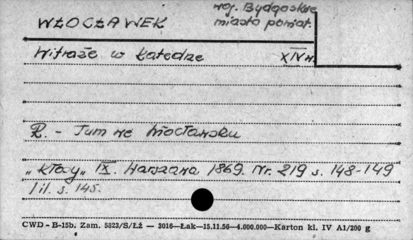 WŁOCŁAWEK
woj. Bydgoskie
miasto powiat.
Witraże w Katedrze XIV w.
R. - Tum we Włocławku
„Kłosy" IX. Warszawa 1869. Nr. 219 s. 148-149
/il. s. 145.
CWD - B-15b. Zam. 5823/S/Łż — 3016—Łak—15.11.56—4.000.000—Karton kl. IV A1/200 g